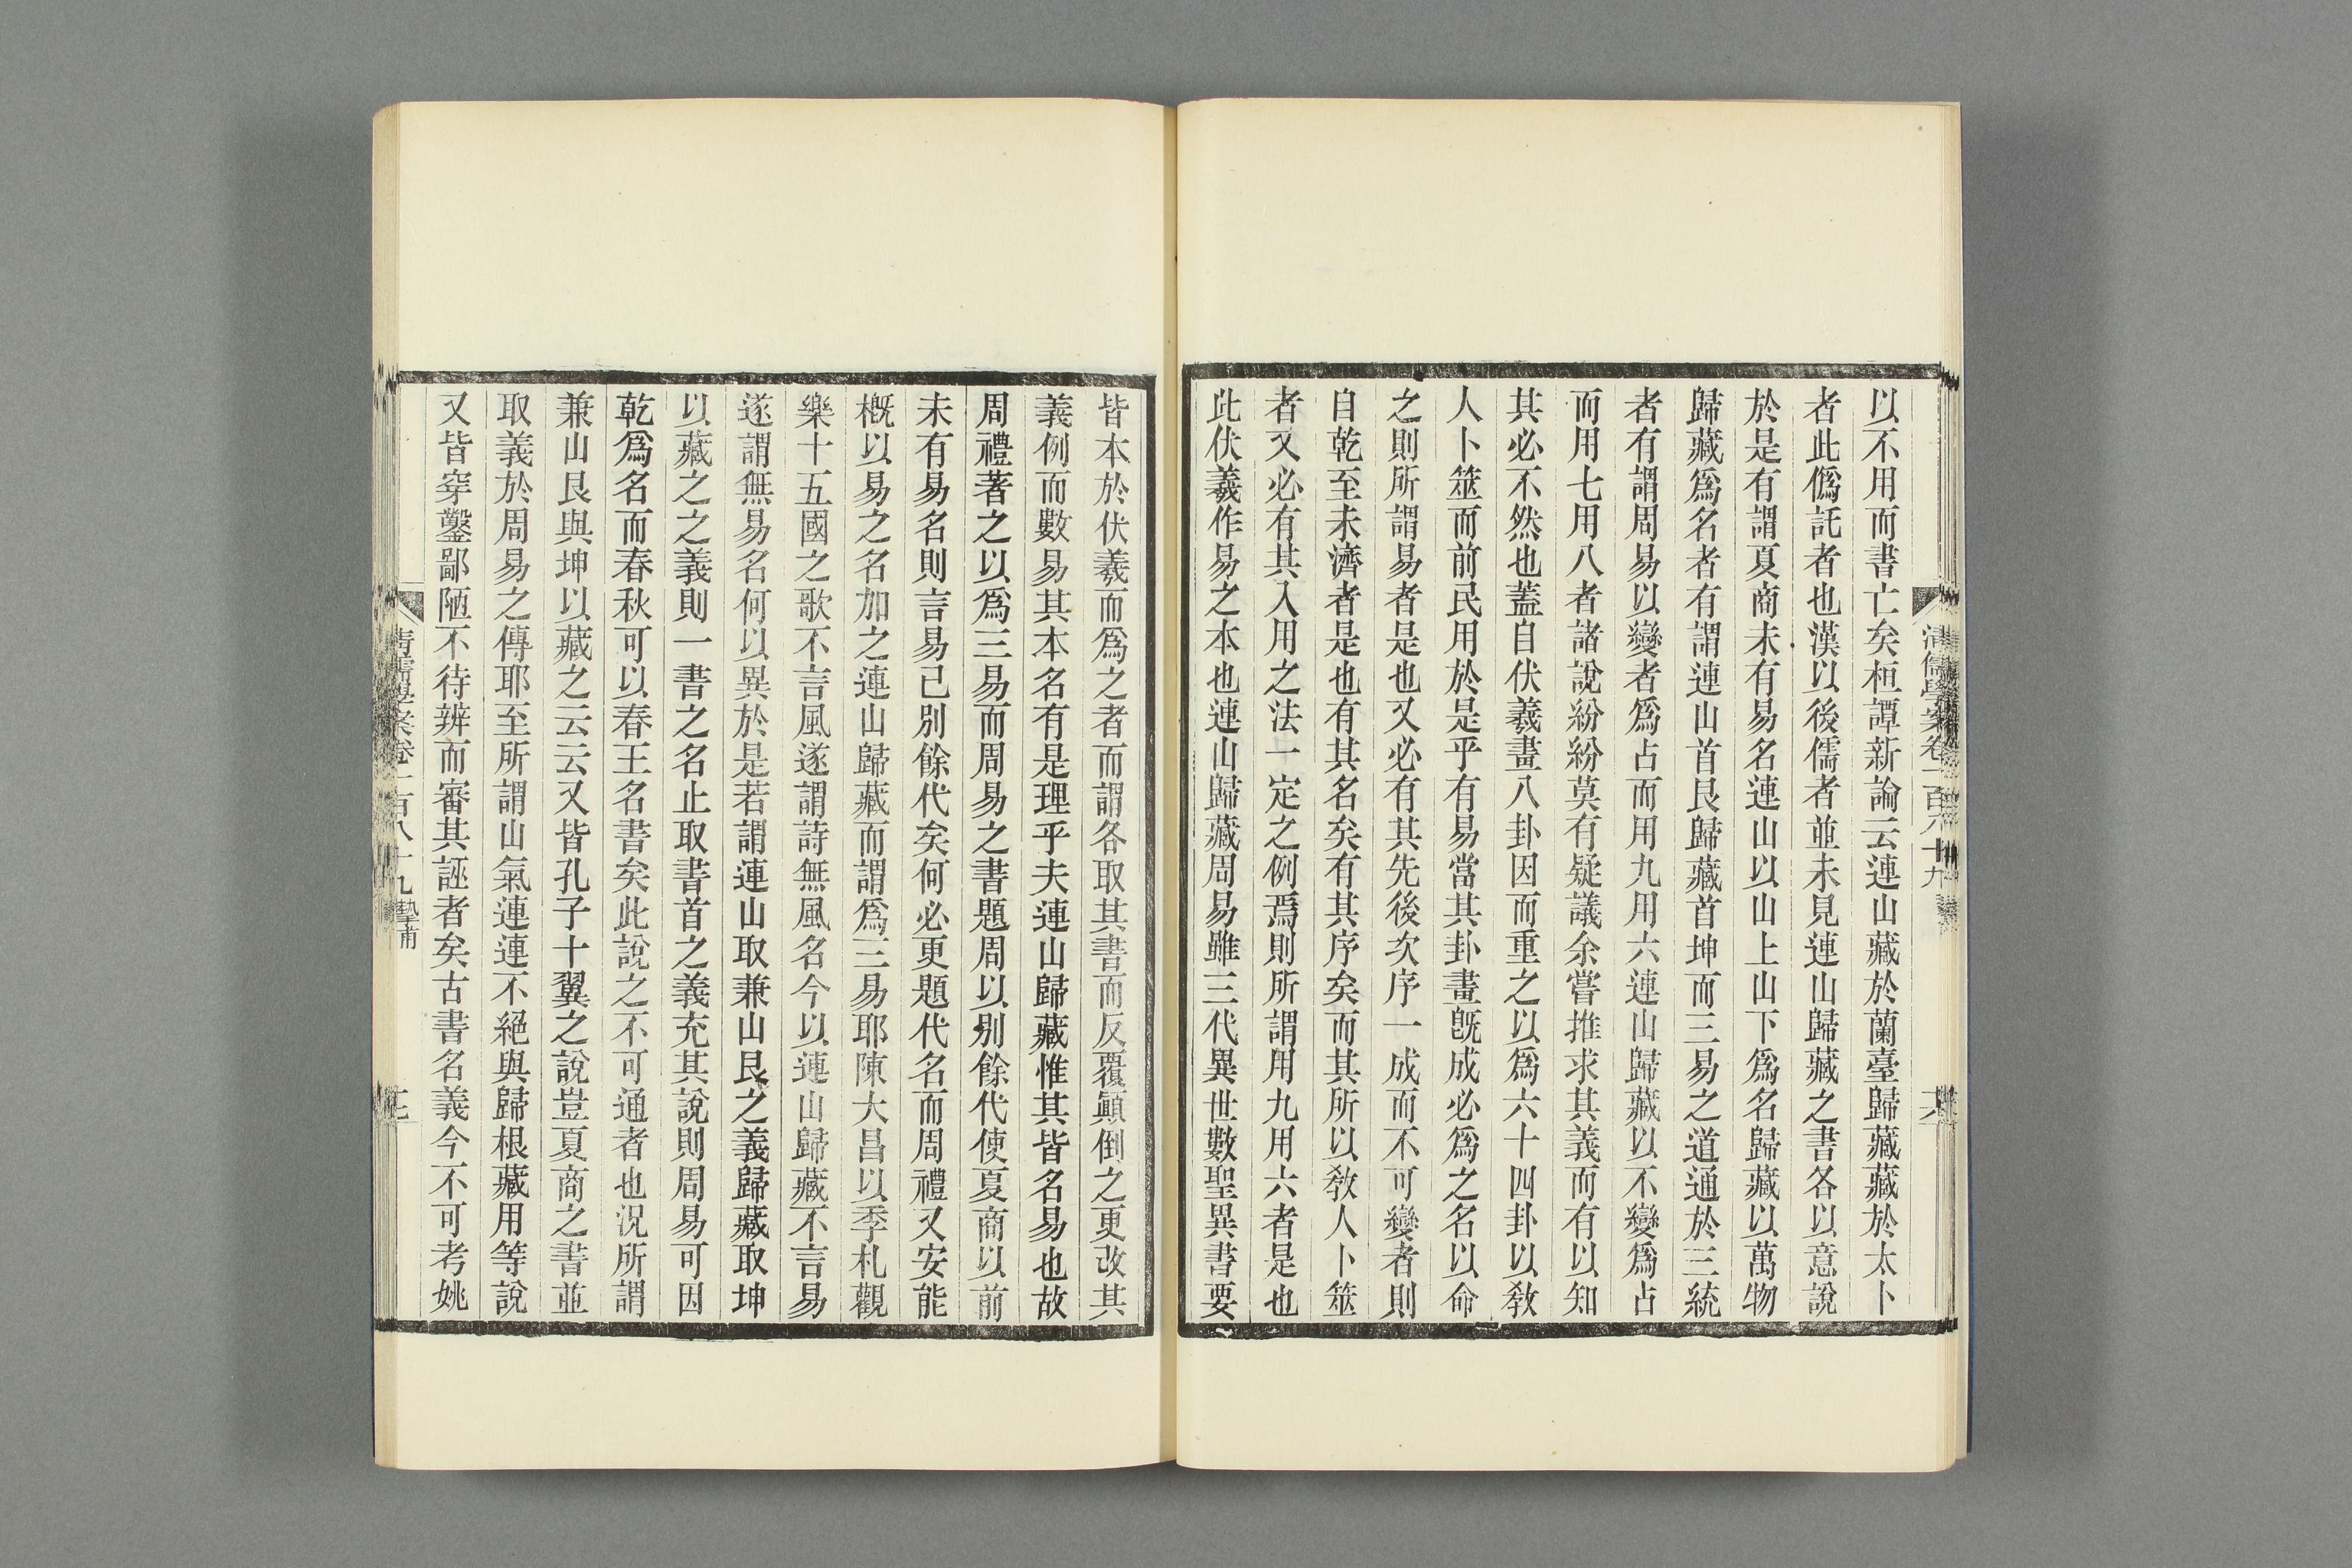 以不用而書亡矣桓譚新論云連山藏於蘭臺歸藏藏於太卜
者此僞託者也漢以後儒者並未見連山歸藏之書各以意說
於是有謂夏商未有易名連山以山上山下爲名歸藏以萬物
歸藏爲名者有謂連山首艮歸藏首坤而三易之道通於三統
者有謂周易以變者爲占而用九用六連山歸藏以不變爲占
而用七用八者諸說紛紛莫有疑議余嘗推求其義而有以知
其必不然也蓋自伏羲畫八卦因而重之以爲六十四卦以敎
人卜筮而前民用於是乎有易當其卦畫旣成必爲之名以命
之則所謂易者是也又必有其先後次序一成而不可變者則
自乾至未濟者是也有其名矣有其序矣而其所以敎人卜筮
者又必有其入用之法一定之例焉則所謂用九用六者是也
此伏羲作易之本也連山歸藏周易雖三代異世數聖異書要
皆本於伏羲而爲之者而謂各取其書而反覆顚倒之更改其
義例而數易其本名有是理乎夫連山歸藏惟其皆名易也故
周禮著之以爲三易而周易之書題周以別餘代使夏商以前
未有易名則言易已別餘代矣何必更題代名而周禮又安能
槪以易之名加之連山歸藏而謂爲三易耶陳大昌以季札觀
樂十五國之歌不言風遂謂詩無風名今以連山歸藏不言易
遂謂無易名何以異於是若謂連山取兼山艮之義歸藏取坤
以藏之之義則一書之名止取書首之義充其說則周易可因
乾爲名而春秋可以春王名書矣此說之不可通者也況所謂
兼山艮與坤以藏之云云又皆孔子十翼之說豈夏商之書並
取義於周易之傳耶至所謂山氣連連不絕與歸根藏用等說
又皆穿鑿鄙陋不待辨而審其誣者矣古書名義今不可考姚